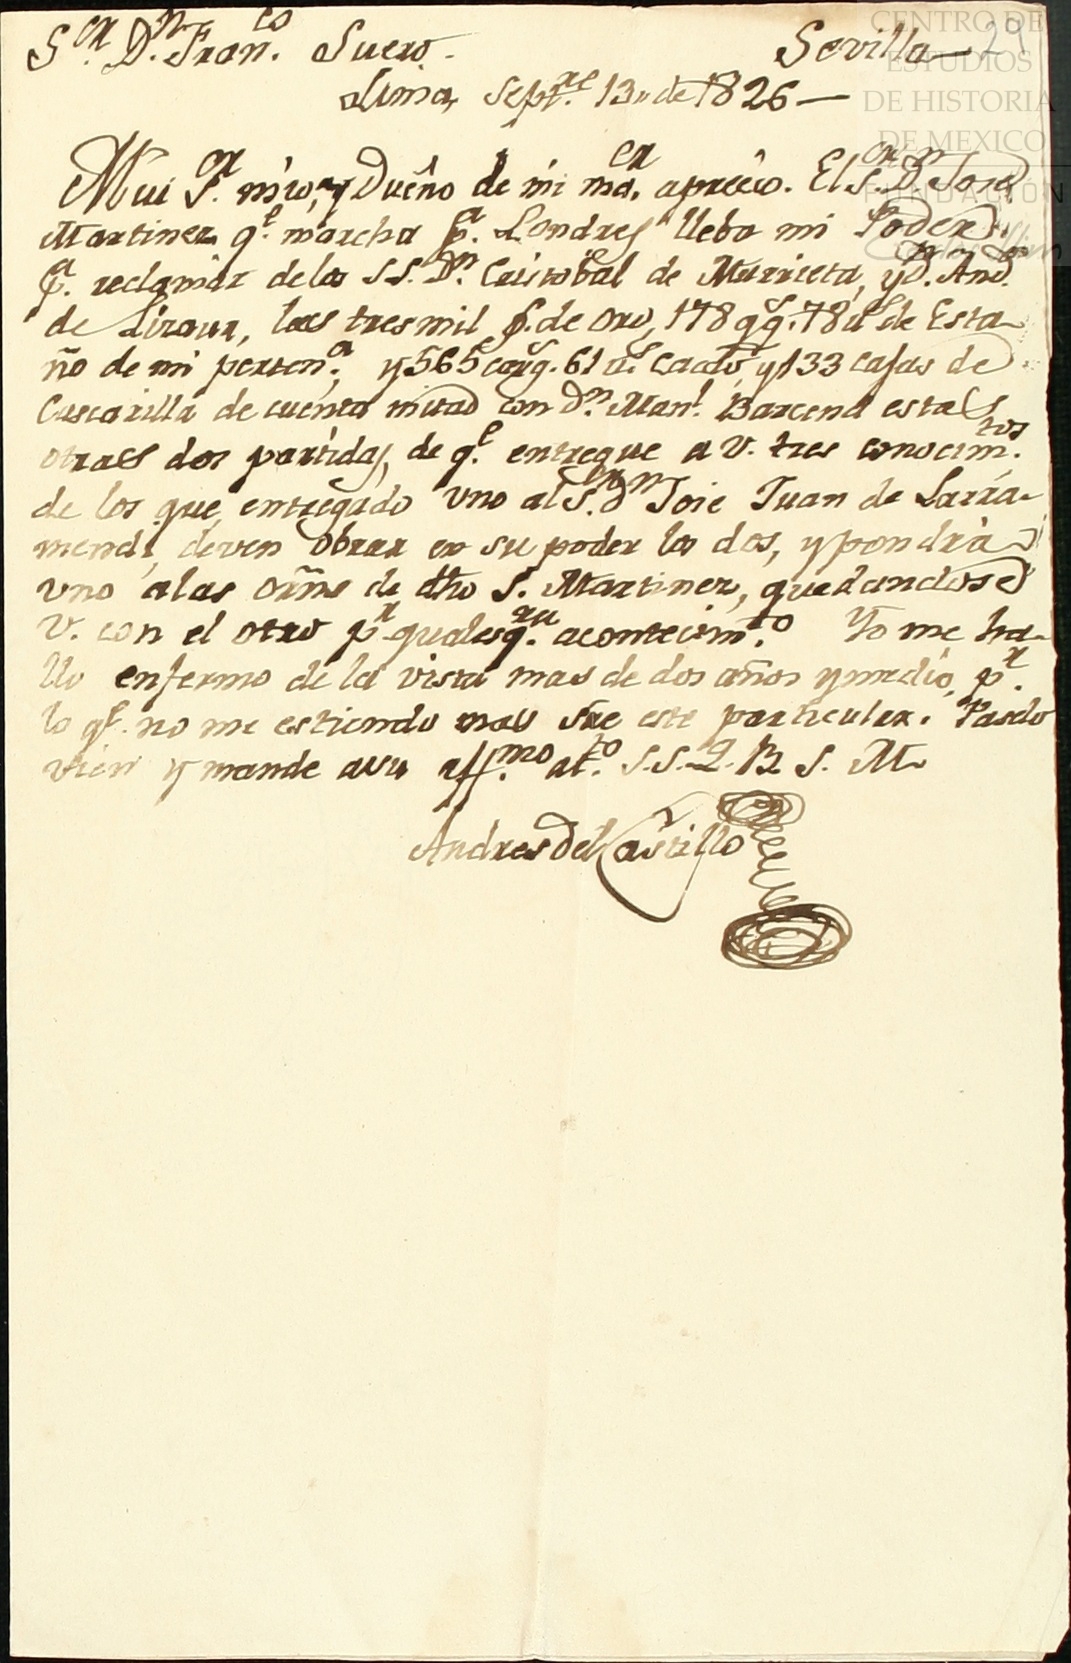 Sor. Dn. Franco. Suero. Sevilla 29
Lima, Septre. 13,, de 1826
Mui Sr. mio, y Dueño de mi mаr. aprecio. El Sor. Dn. José
Martinez qe. marcha pa. Londres lleba mi Poder
pa. reclamar de los SS. Dn. Cristobal de Murrieta, y Dn. Ands.
de Lizaur, las tres mil ps. de oro, 178 qqs. 78 ls. de Esta-
ño de mi pertena. y 565 cargs. 61 ls. Cacao, y 133 cajas de
Cascarilla de cuenta mitad con Dn. Manl. Barcena estas
otras dos partidas, de qe. entregue a V. tres conocimtos.
de los que, entregado uno al Sor. Dn. Jose Juan de Larra-
mendi, deven obrar en su poder los dos, y pondrá
uno a las orñs de dho S. Martinez, quedandose
V. con el otro pr. qualesqra. acontecimto. Yo me ha-
llo enfermo de la vista mas de dos años y medio, pr.
lo qe. no me estiendo mas sre este particular. Paselo
vien y mande a su affmo. ato. S.S. Q. B. S. M.
Andres del Castillo
CENTRO DE
ESTUDIOS
DE HISTORIA
DE MEXICO
FUNDACIÓN
Carlos Slim